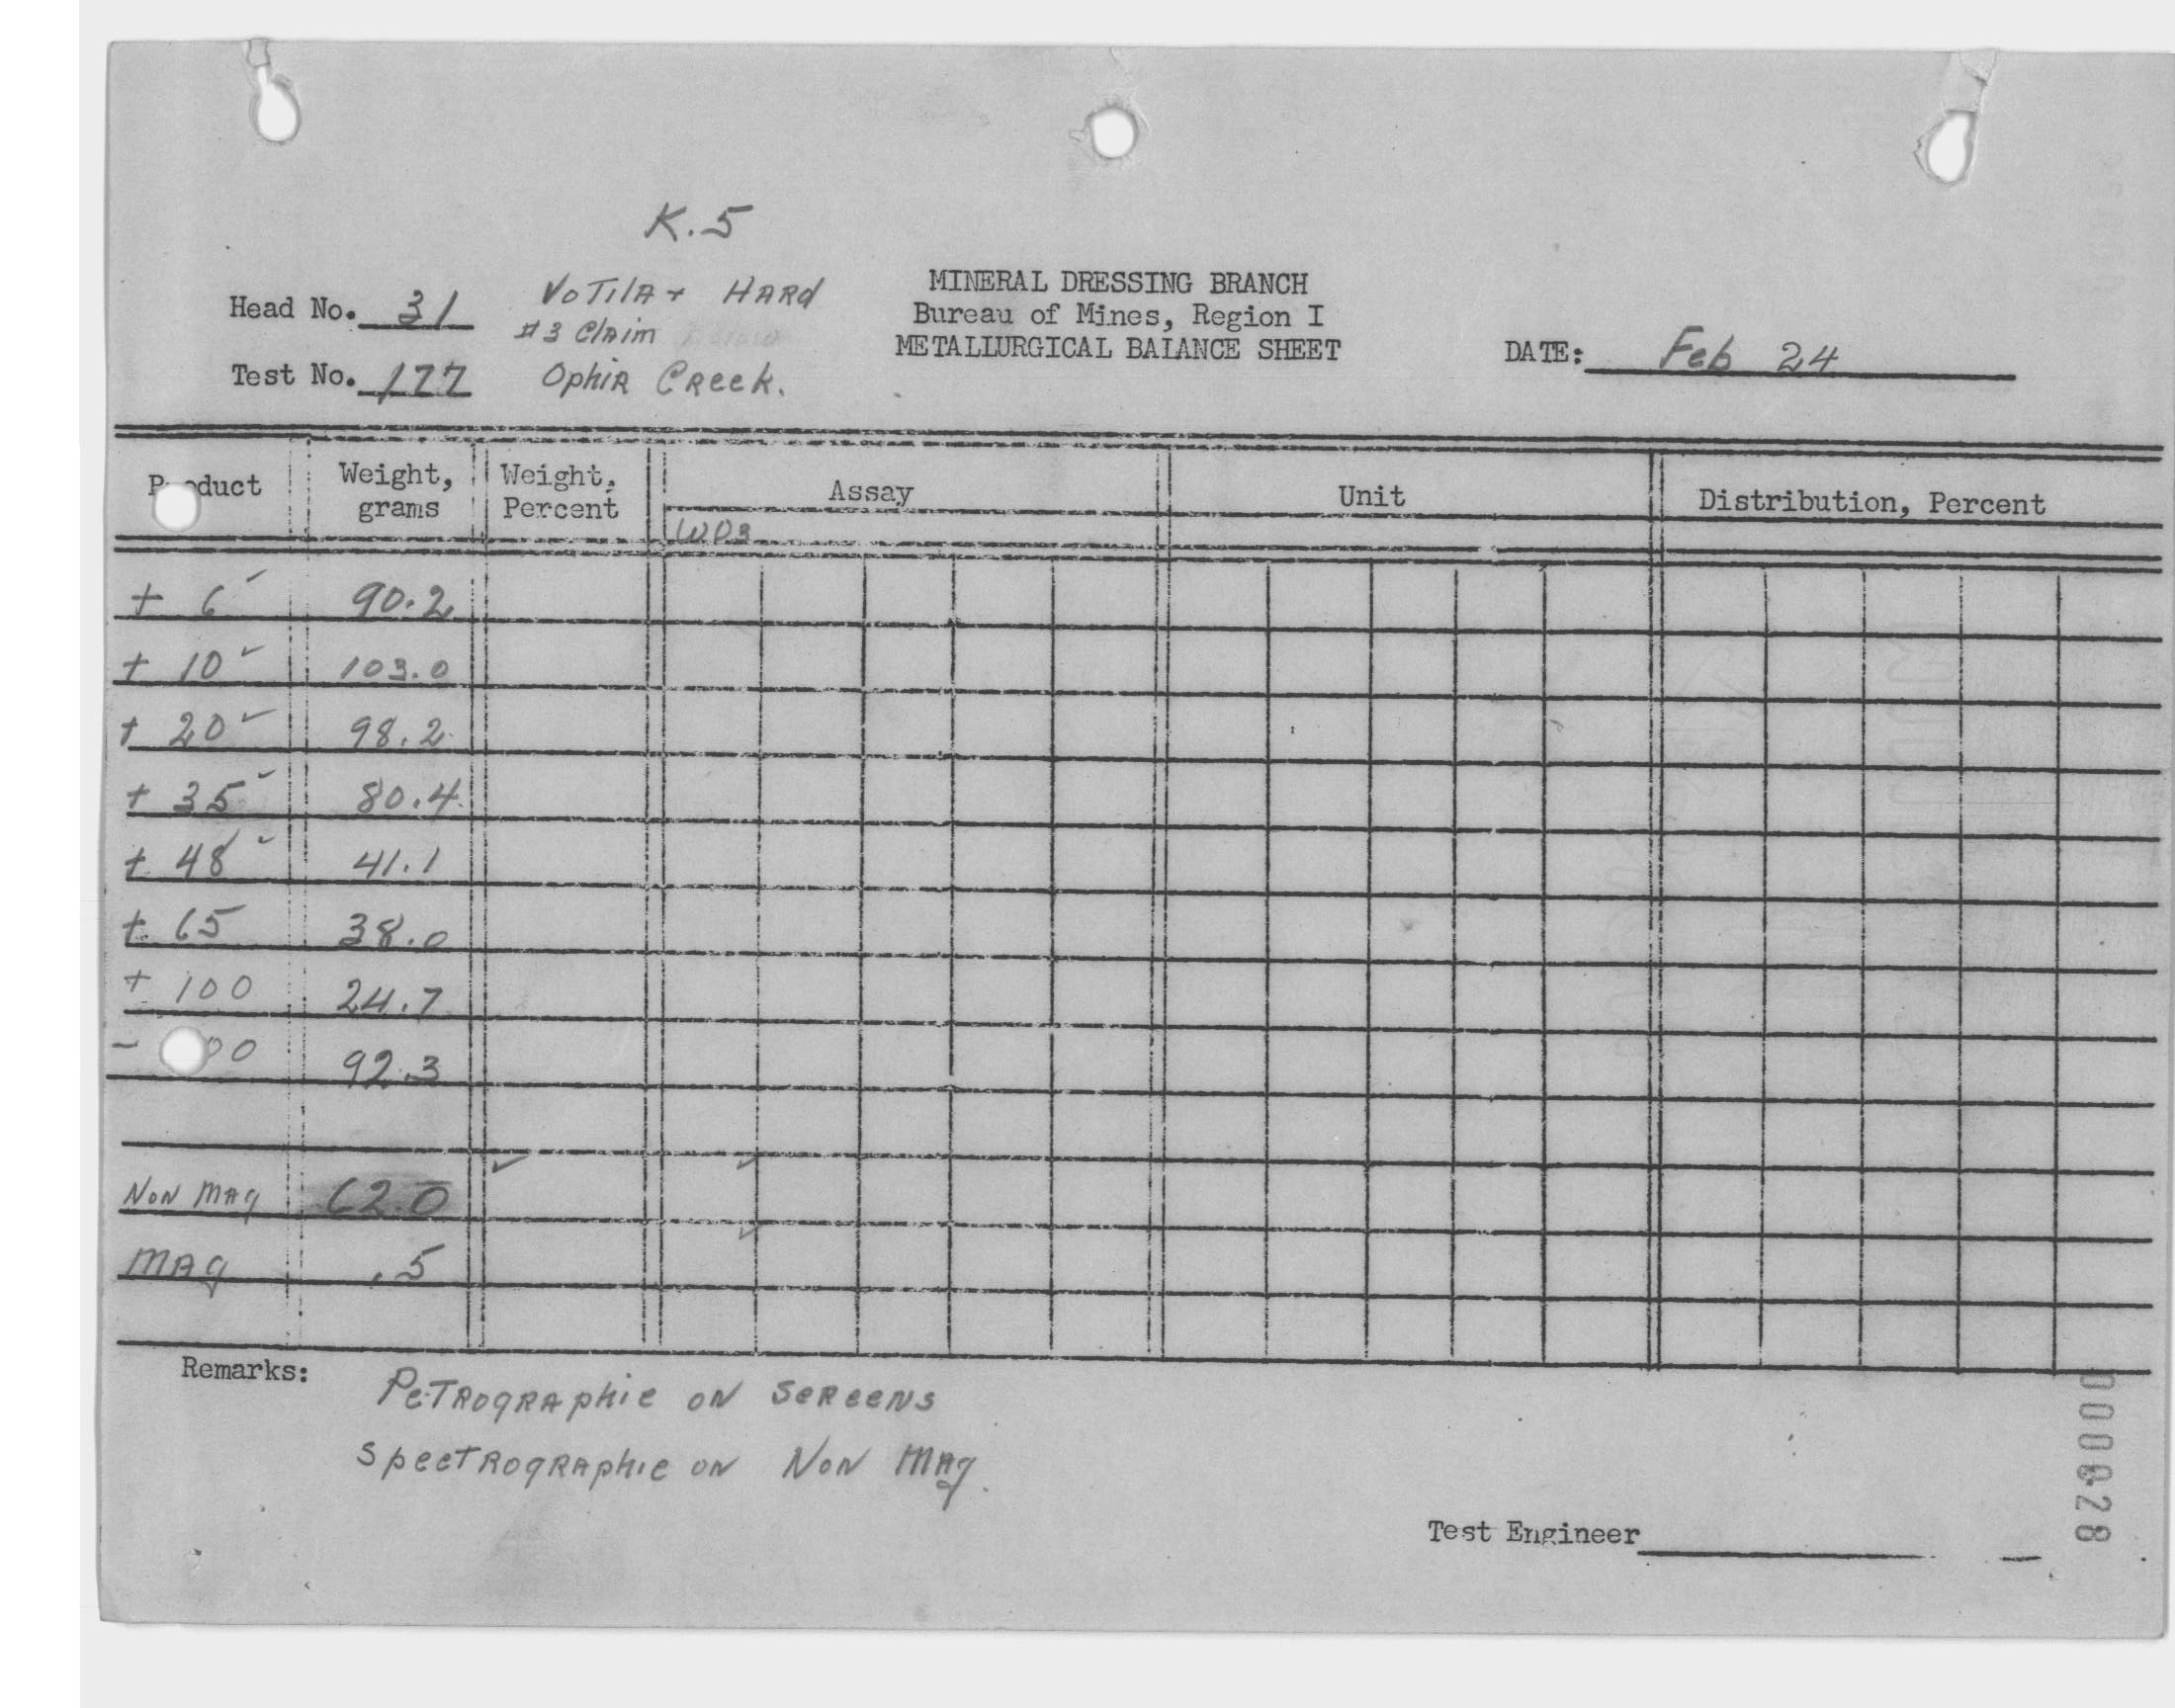 K.5
Head No. 31
Votila + Hard
#3 Claim
Test No. 177
Ophir Creek.
MINERAL DRESSING BRANCH
Bureau of Mines, Region I
METALLURGICAL BALANCE SHEET
DATE: Feb 24
Product Weight, grams Weight, Percent Assay Unit Distribution, Percent
WO3
+ 6 90.2
+ 10 103.0
+ 20 98.2
+ 35 80.4
+ 48 41.1
+ 65 38.0
+ 100 24.7
- 92.3
Non Mag 62.0
Mag .5
Remarks:
Petrographic on screens
Spectrographic on Non Mag.
Test Engineer
000028